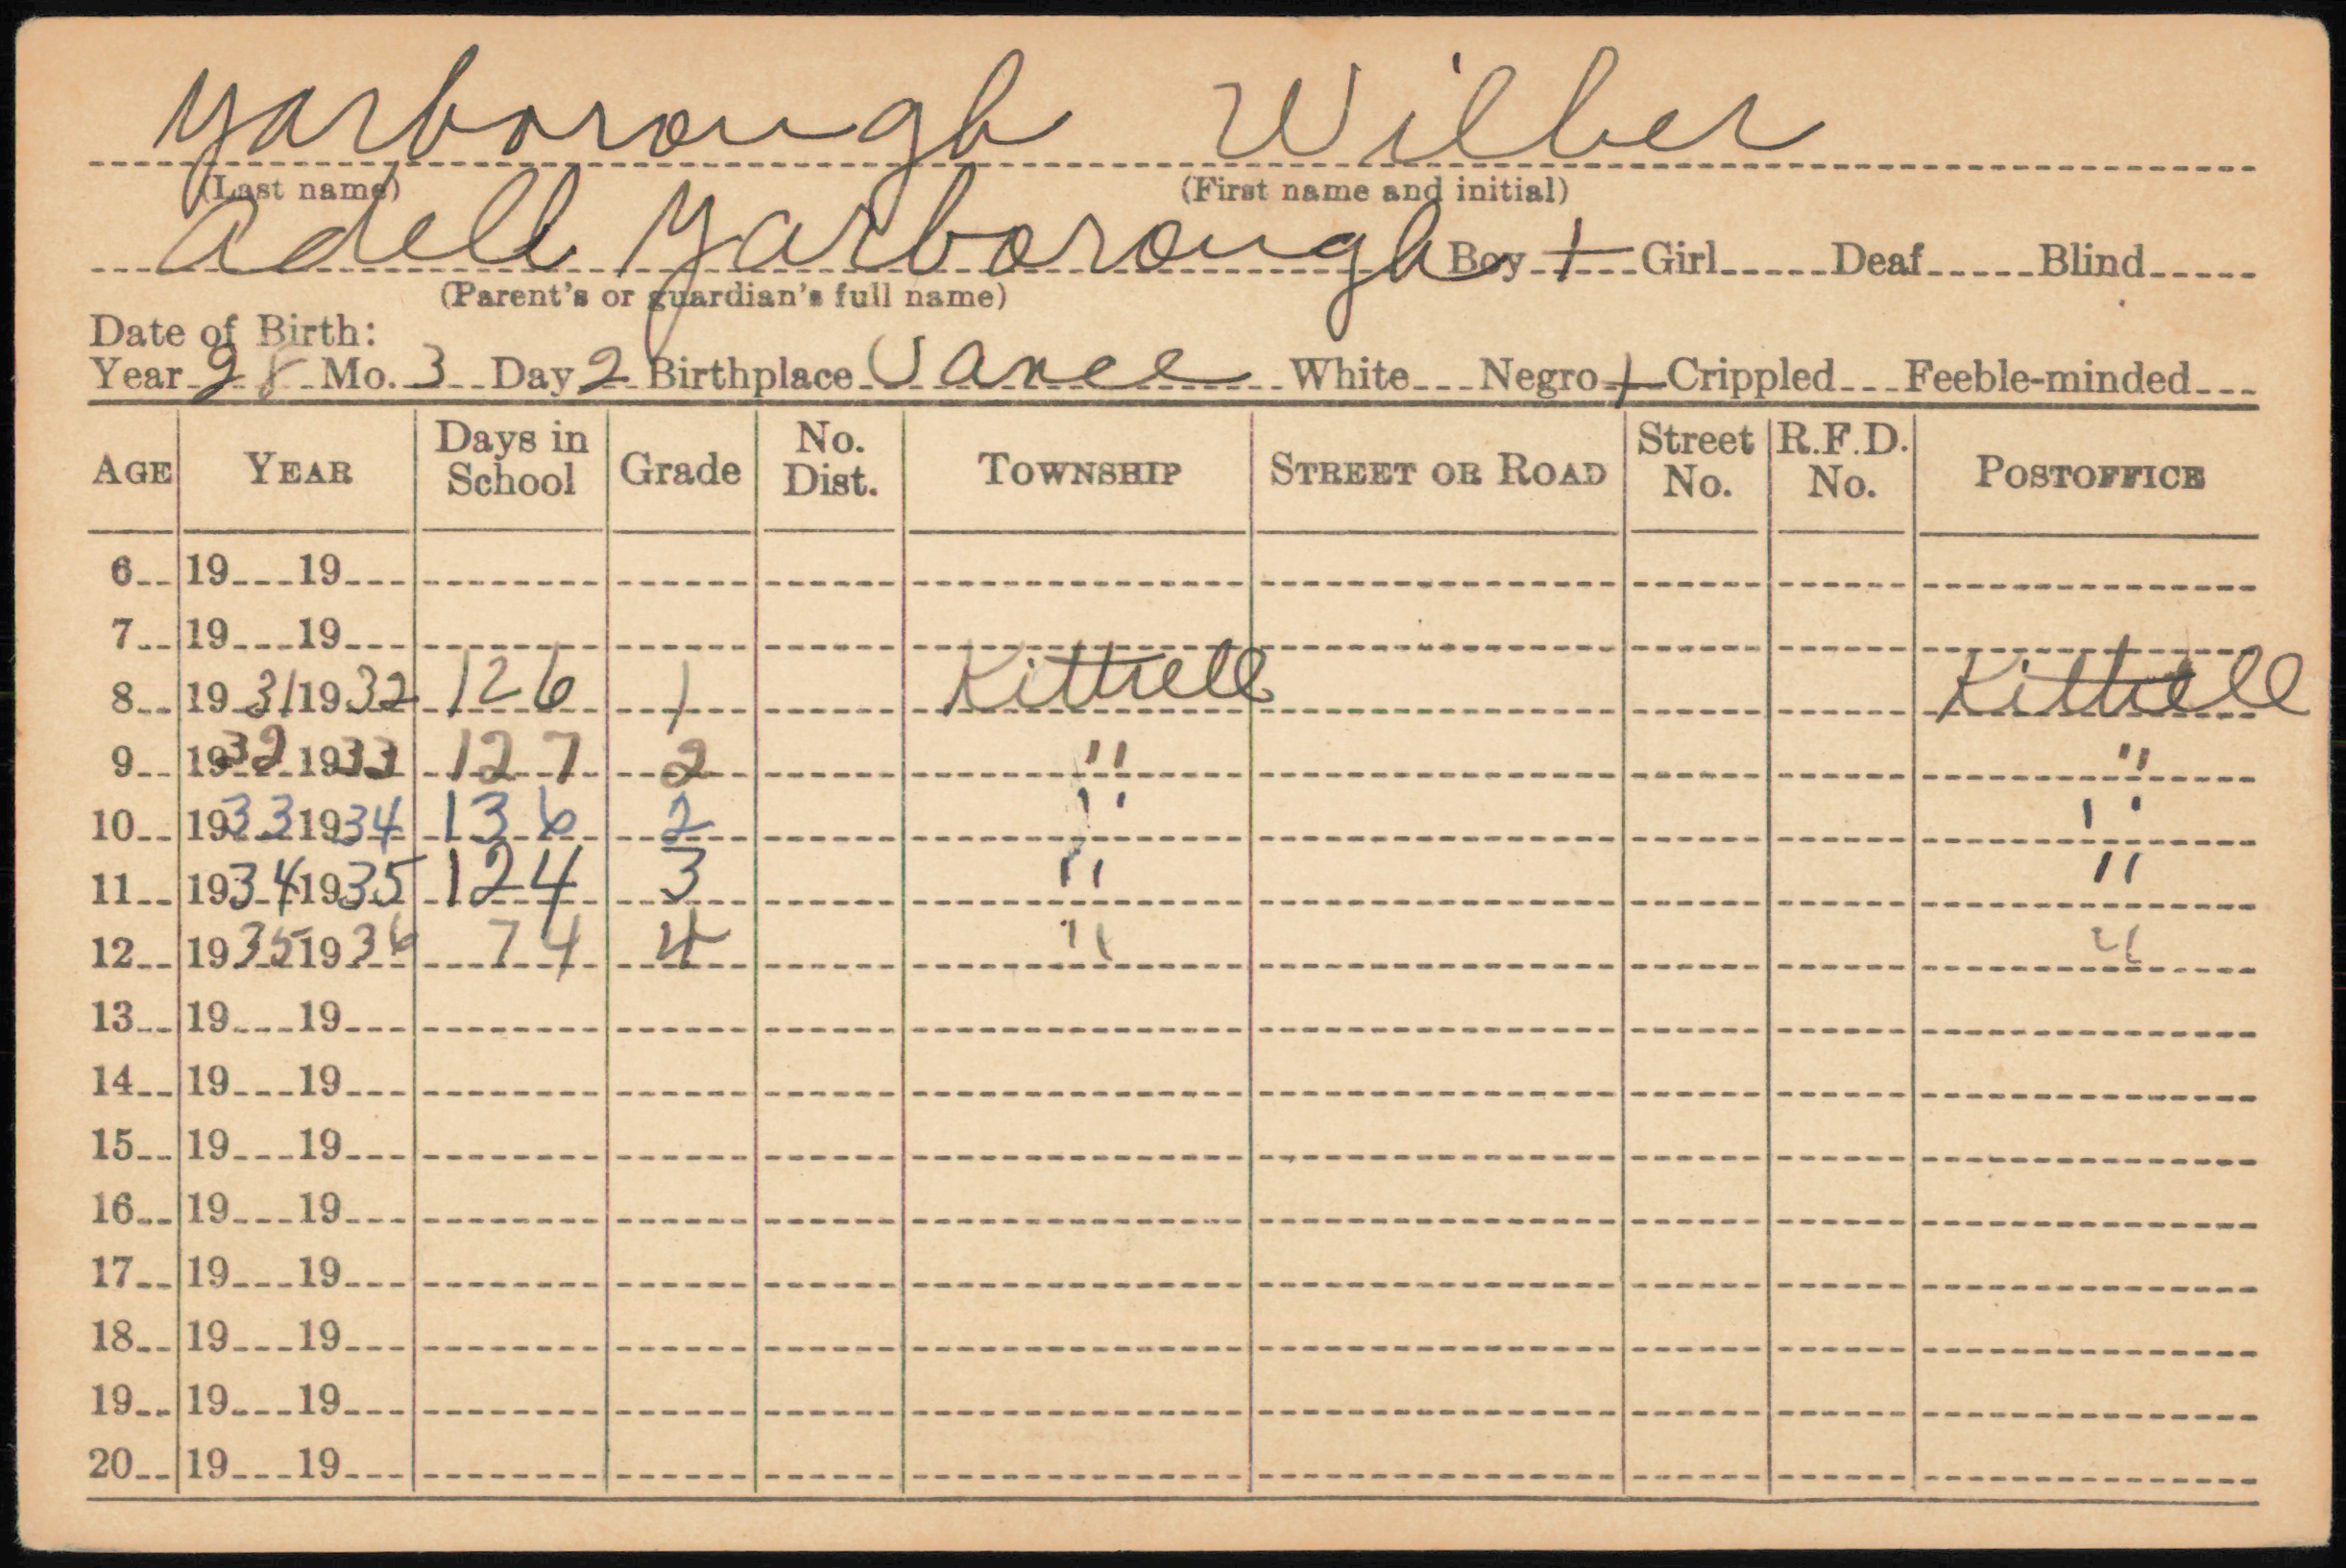 Yarborough Wilber
(Last name) (First name and initial)
Adell Yarborough Boy + Girl Deaf Blind
(Parent's or guardian's full name)
Date of Birth:
Year 28 Mo. 3 Day 2 Birthplace Vance White Negro + Crippled Feeble-minded
AGE YEAR Days in School Grade No. Dist. TOWNSHIP STREET OR ROAD Street No. R.F.D. No. POSTOFFICE
6 19 19
7 19 19
8 19 31 19 32 126 1 Kittrell Kittrell
9 19 32 19 33 127 2 " "
10 19 33 19 34 136 2 " "
11 19 34 19 35 124 3 " "
12 19 35 19 36 74 4 " "
13 19 19
14 19 19
15 19 19
16 19 19
17 19 19
18 19 19
19 19 19
20 19 19